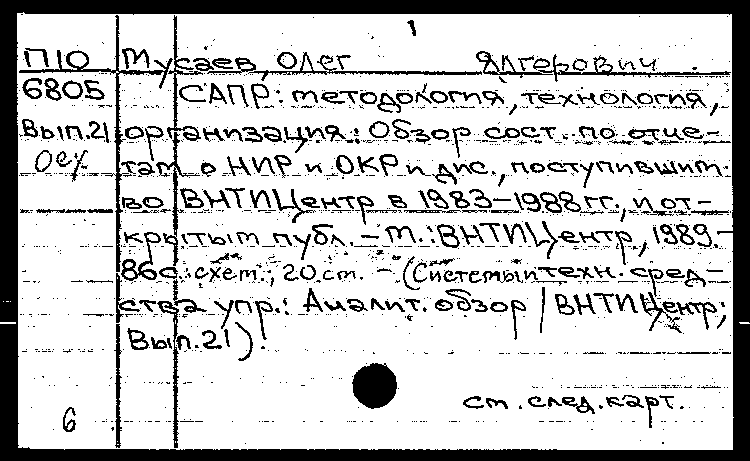 1
П10 Мусаев, Олег Ялгерович.
6805 САПР: методология, технология,
Вып.21 организация: Обзор сост. по отче-
там о НИР и ОКР и дис., поступившим
во ВНТИЦентр в 1983-1988 гг., и от-
крытым публ. - М.: ВНТИЦентр, 1989.-
86с.: схем.; 20 см. - (Системы и техн. сред-
ства упр.: Аналит. обзор / ВНТИЦентр;
Вып.21).
6 см. след. карт.